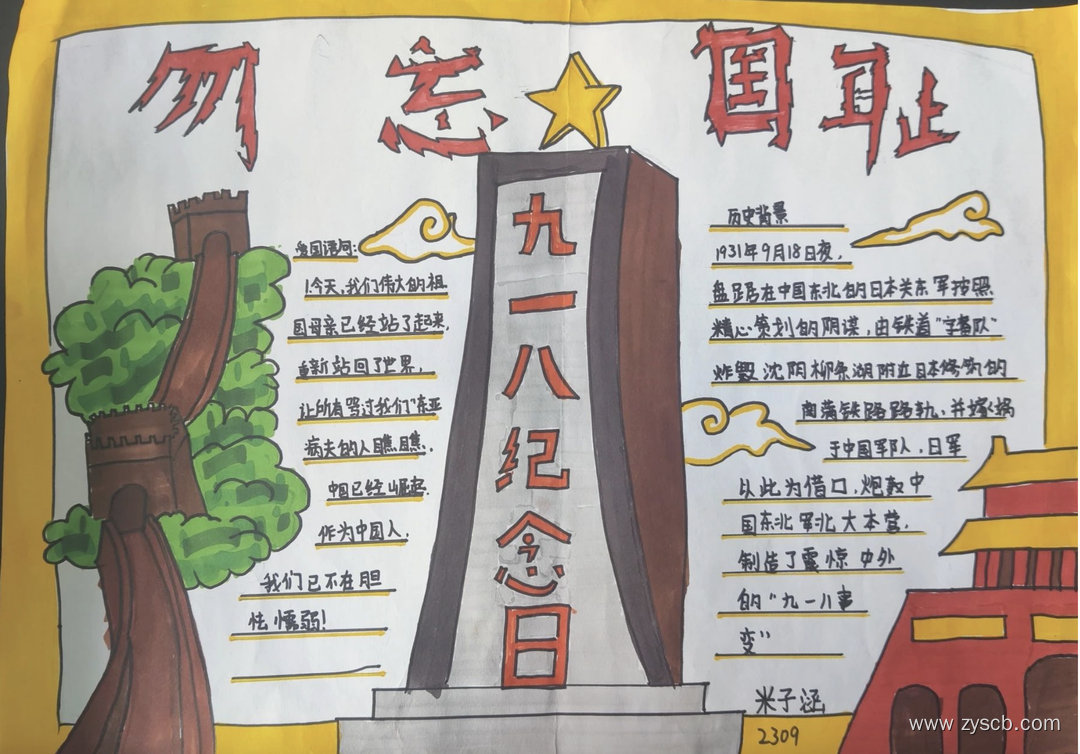 勿忘国耻
九一八纪念日
爱国语句:
1今天,我们伟大的祖
国母亲已经站了起来,
重新站回了世界,
让所有骂过我们“东亚
病夫的人瞧瞧.
中国已经崛起.
作为中国人,
我们已不在胆
怯懦弱!
历史背景
1931年9月18日夜,
盘踞在中国东北的日本关东军按照
精心策划的阴谋,由铁道“守备队”
炸毁沈阴柳条湖附近日本修筑的
南满铁路路轨,并嫁祸
于中国军队,日军
以此为借口,炮轰中
国东北军北大本营.
制造了震惊中外
的“九一八事
变”
米子涵
2309
www.zyscb.com